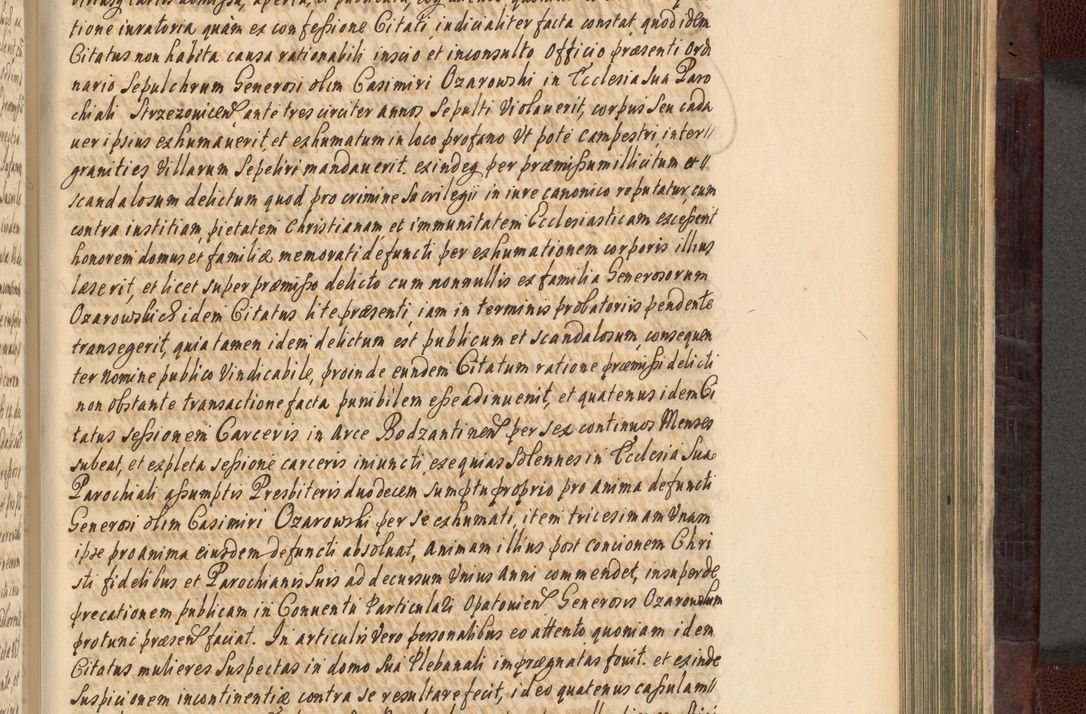 tione iuratoria quàm ex confessione Citati, iudicialiter facta constat, quod idem
Citatus non habita causa rationabili inscio et inconsulto Officio præsenti Ordi
nario Sepulchrum Generosi olim Casimiri Ozarowski in Ecclesia Sua Paro
chiali Strzezovicen ante tres circiter annos Sepulti Violaverit, corpus Seu cada
uer ipsius exhumauerit, et exhumatum in loco profano Ut pote campestri, inter
granities Villarum Sepeliri mandauerit. exindeq per præmissum illicitum et
scandalosum delictum quod pro crimine Sacrilegii in iure canonico reputatur, cum
contra iustitiam, pietatem Christianam et immunitatem Ecclesiasticam excesserit
honorem domus et familiæ memorati defuncti per exhumationem corporis illius
læserit, et licet super præmisso delicto cum nonnullis ex familia Generosorum
Ozarowskich idem Citatus lite præsenti, iam in terminis probatoriis pendente
transegerit, quia tamen idem delictum est publicum et scandalosum, consequen
ter nomine publico Vindicabile, proinde eundem Citatum ratione præmissi delicti
non obstante transactione facta punibilem esse adinuenit, et quatenus idem Ci
tatus sessionem Carceris in Arce Bodzantinen per sex continuos Menses
subeat, et expleta sessione carceris iniuncti, exequias Solennes in Ecclesia Sua
Parochiali assumptis Presbiteris duodecem sumptu proprio pro anima defuncti
Generosi olim Casimiri Ozarowski per se exhumati, item tricesimam Unam
ipse pro anima eiusdem defuncti absoluat, animam illius post concionem Chri
sti fidelibus et Parochianis Suis ad decursum Unius Anni commendet, insuper de
precationem publicam in Conuentu Particulari Opatovien Generosis Ozarowskim
protunc præsen faciat. In articulis Vero personalibus eo attento quoniam idem
Citatus mulieres Suspectas in domo Sua Plebanali imprægnatas fouit. et exinde
Suspicionem incontinentiæ contra se resultare fecit, ideo quatenus cassulam